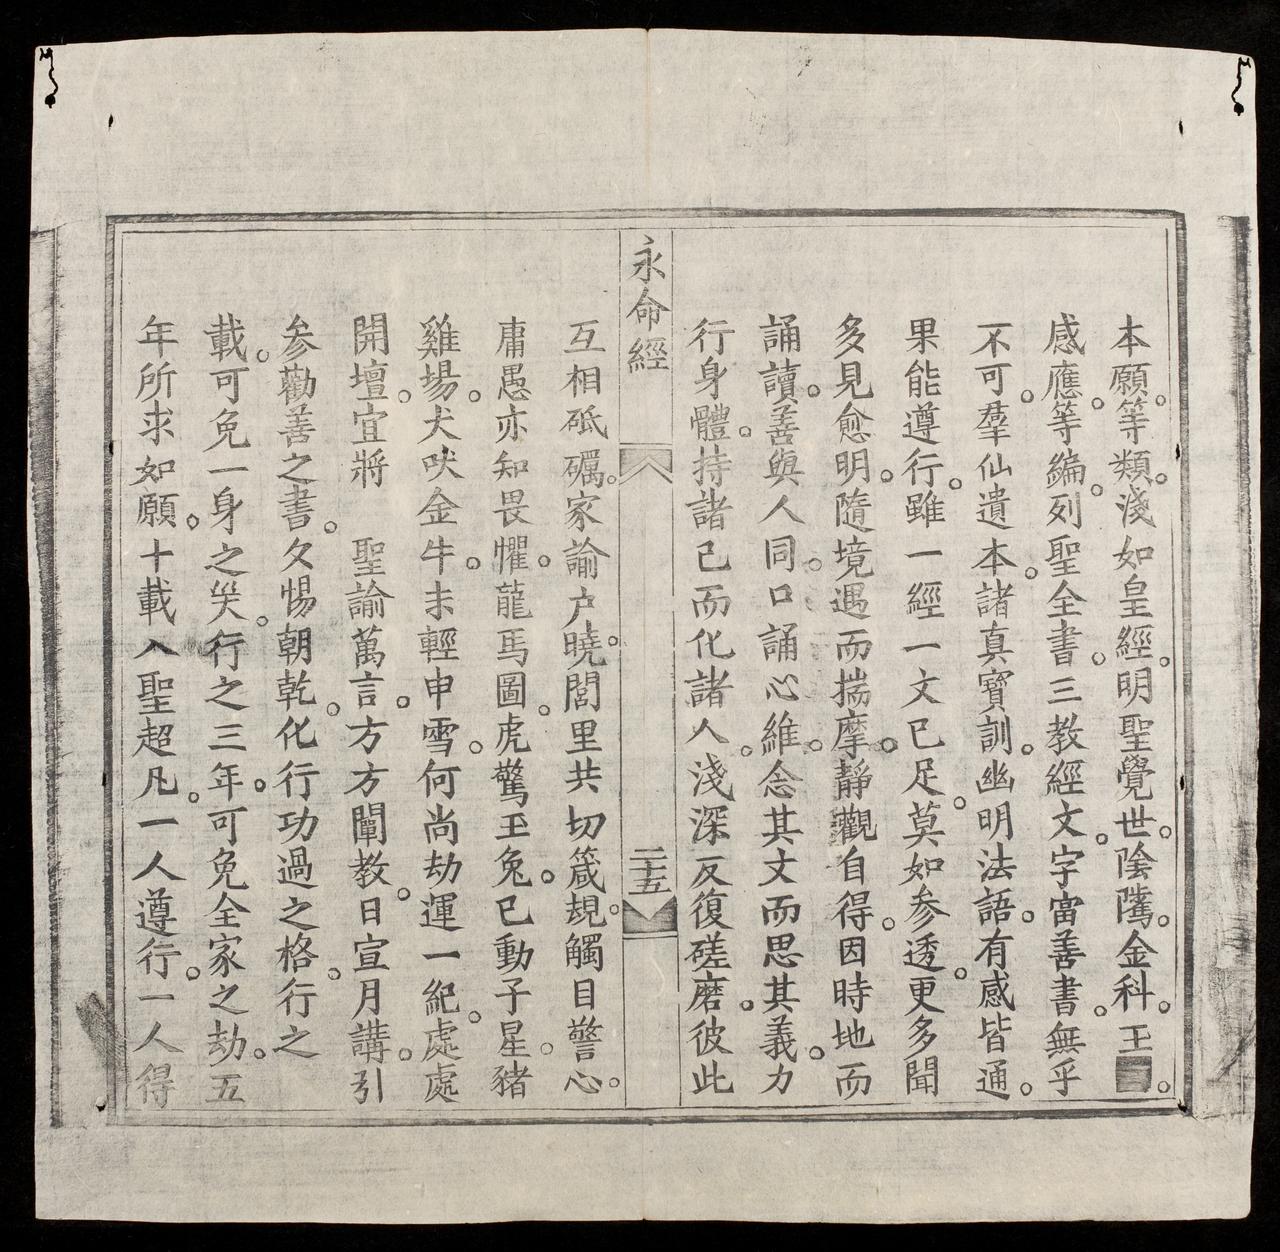 本願。等類。淺如皇經。明聖覺世。陰騭。金科。玉■。
感應。等編。列聖全書。三教經文。字富善書。無乎
不可。羣仙遺本。諸真寶訓。幽明法語。有感皆通。
果能遵行。雖一經一文已足。莫如參透。更多聞
多見愈明。隨境遇而揣摩。靜觀自得。因時地而
誦讀。善與人同。口誦心維。念其文而思其義。力
行身體。持諸己而化諸人。淺深反復磋磨。彼此
永命經
二十五
互相砥礪。家諭户曉。閭里共切箴規。觸目警心。
庸愚亦知畏懼。龍馬圖。虎驚玉兔。已動子星。豬
雞場。犬吠金牛。未輕申雪。何尚劫運一紀。處處
開壇。宜將 聖諭萬言。方方闡教。日宣月講。引
参勸善之書。夕惕朝乾。化行功過之格。行之
載。可免一身之災。行之三年。可免全家之劫。五
年所求如願。十載入聖超凡。一人遵行。一人得